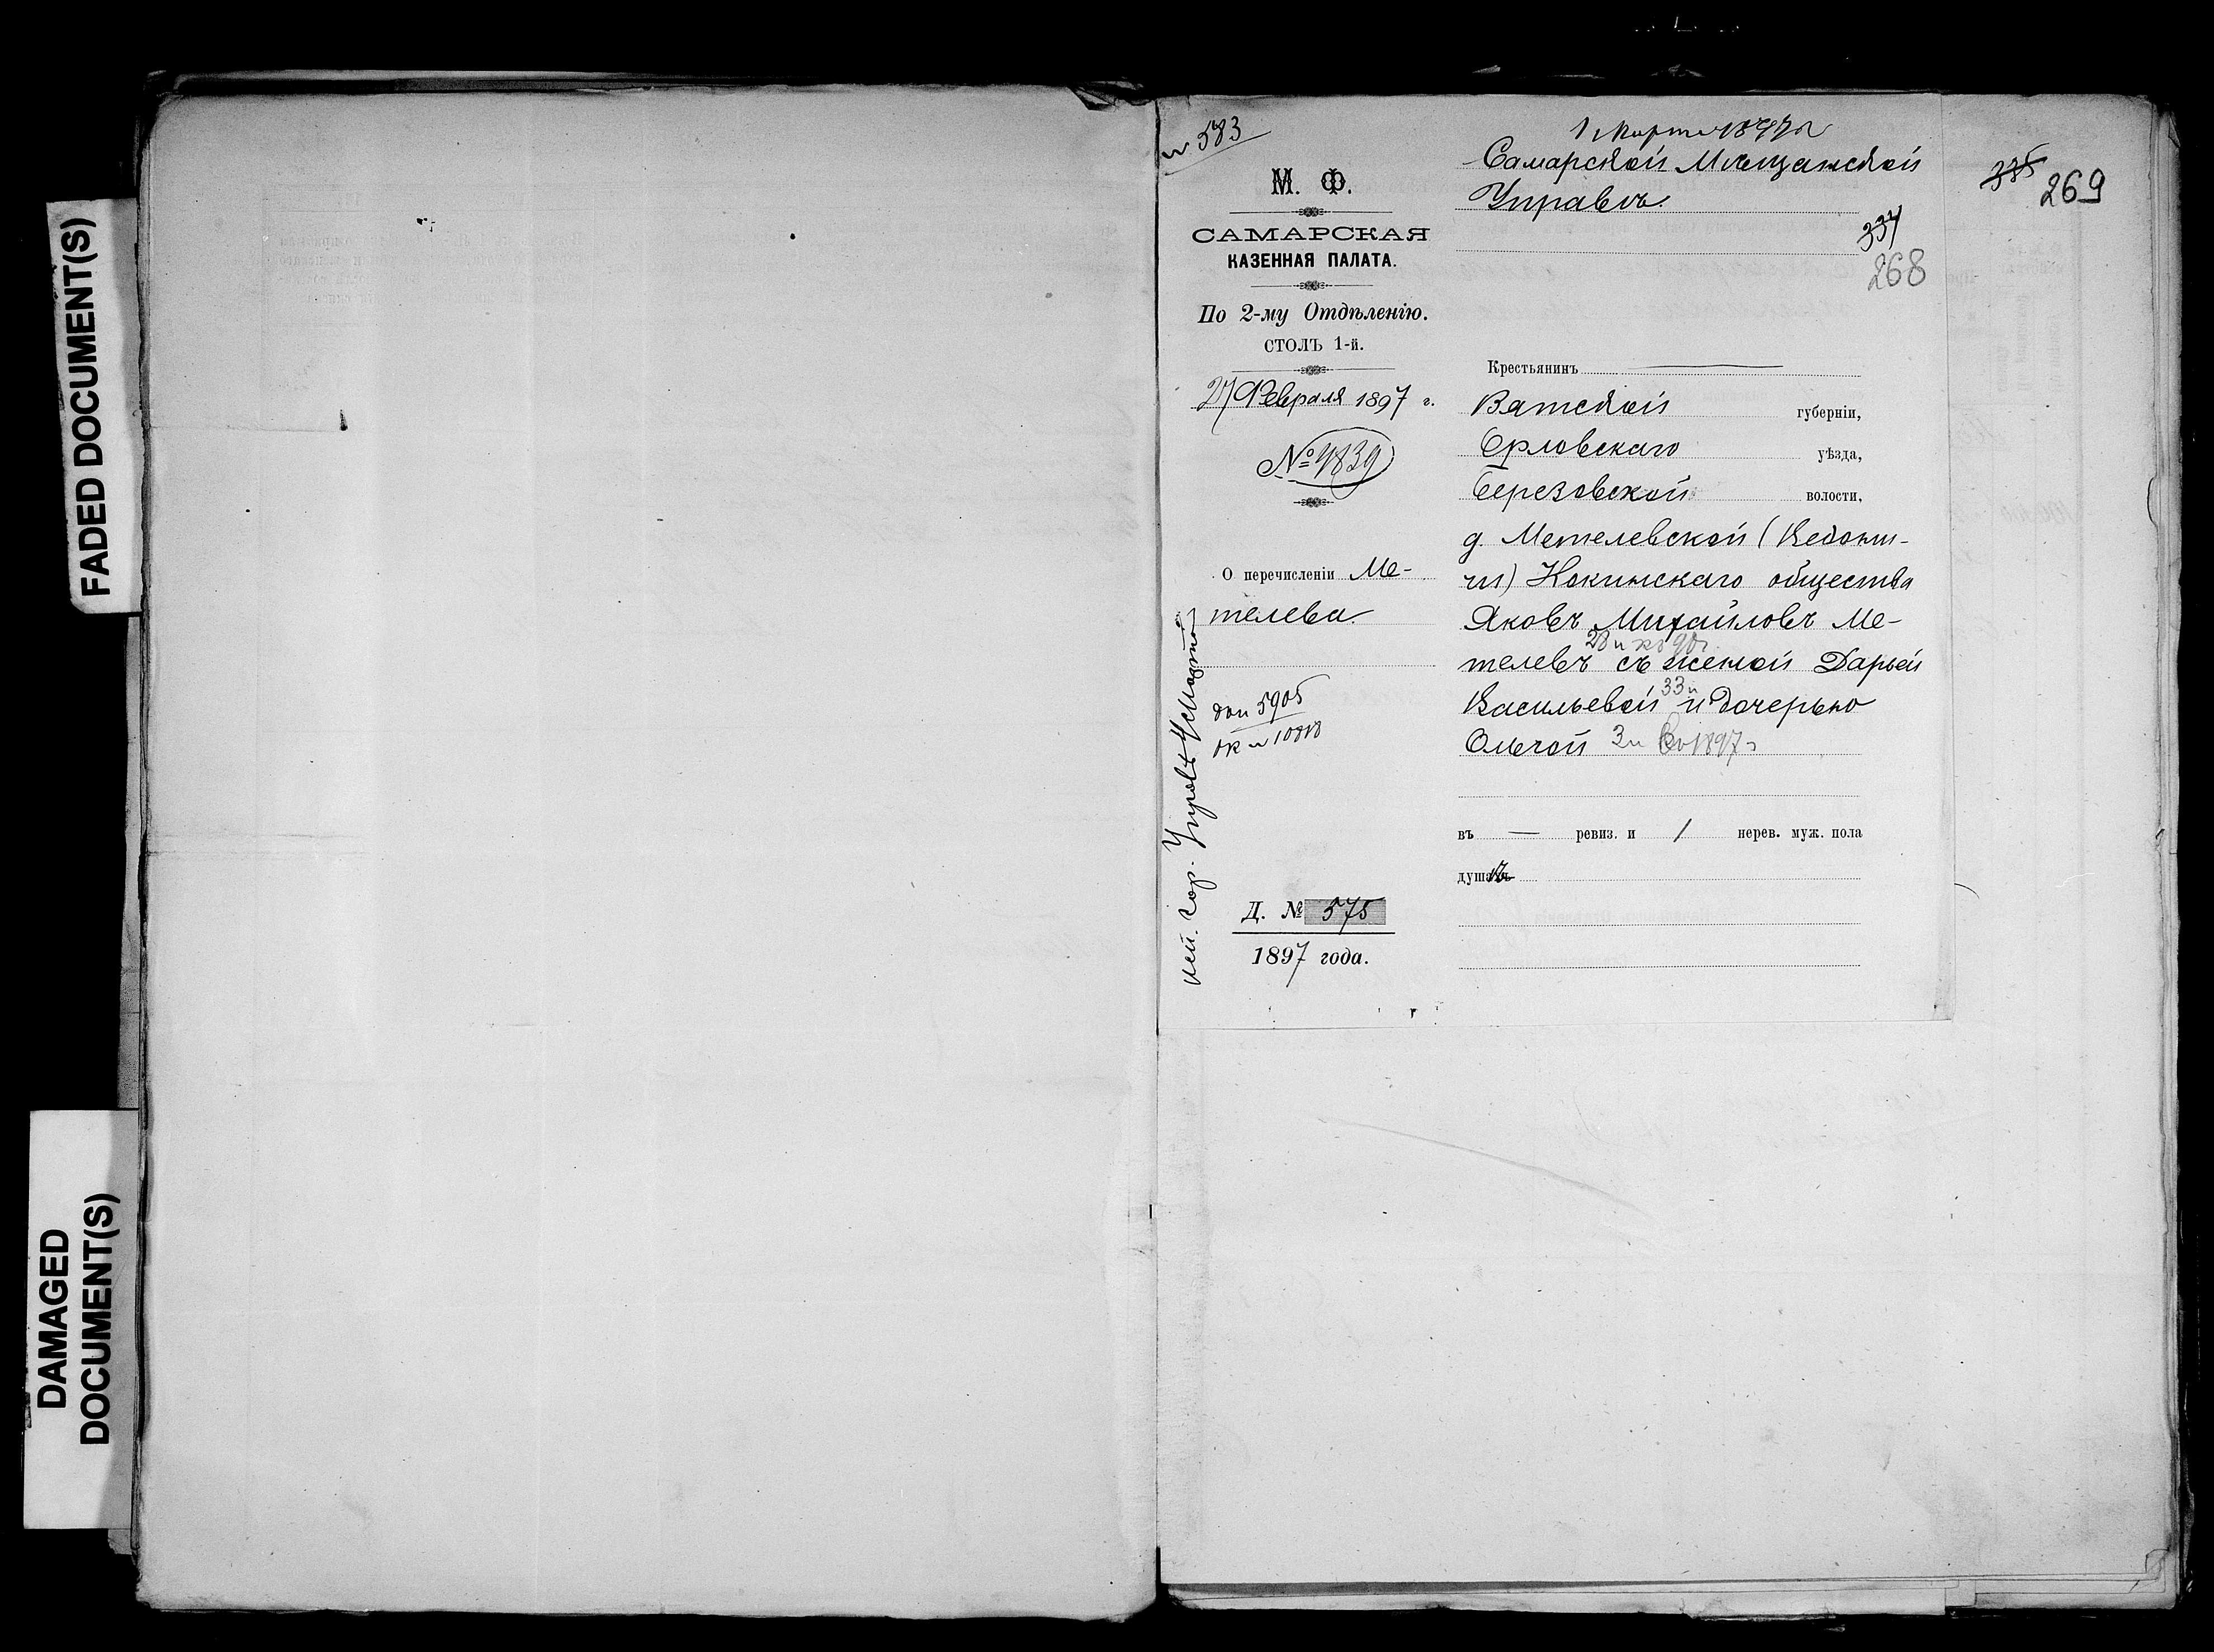 FADED DOCUMENT(S)
DAMAGED
DOCUMENT(S)
583
М. Ф.
САМАРСКАЯ
КАЗЕННАЯ ПАЛАТА.
По 2-му Отдѣленію.
СТОЛЪ 1-й.
27 Февраля 1897 г.
№ 4839
О перечисленіи Ме-
телева.
5905
Д. № 575
1897 года.
1 Марта 1897 г
Самарской Мѣщанской
Управѣ
337
268
335
269
Крестьянинъ
Вятской губерніи,
Орловскаго уѣзда,
Березовской волости,
д. Метелевской (
общества
Яковъ Михайловъ Ме-
телевъ съ женой Дарьей
Васильевой 33 и дочерью
Ольгой 3 1897
въ — ревиз. и 1 нерев. муж. пола
душахъ